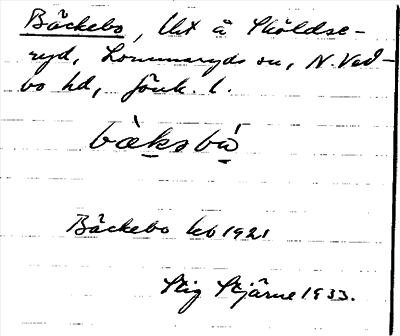 Bäckebo, lht å Sköldse-
ryd, Lommaryds sn, N. Ved-
bo hd, Jönk. l.
bæksbo
Bäckebo kb 1921
Stig Stjärne 1933.